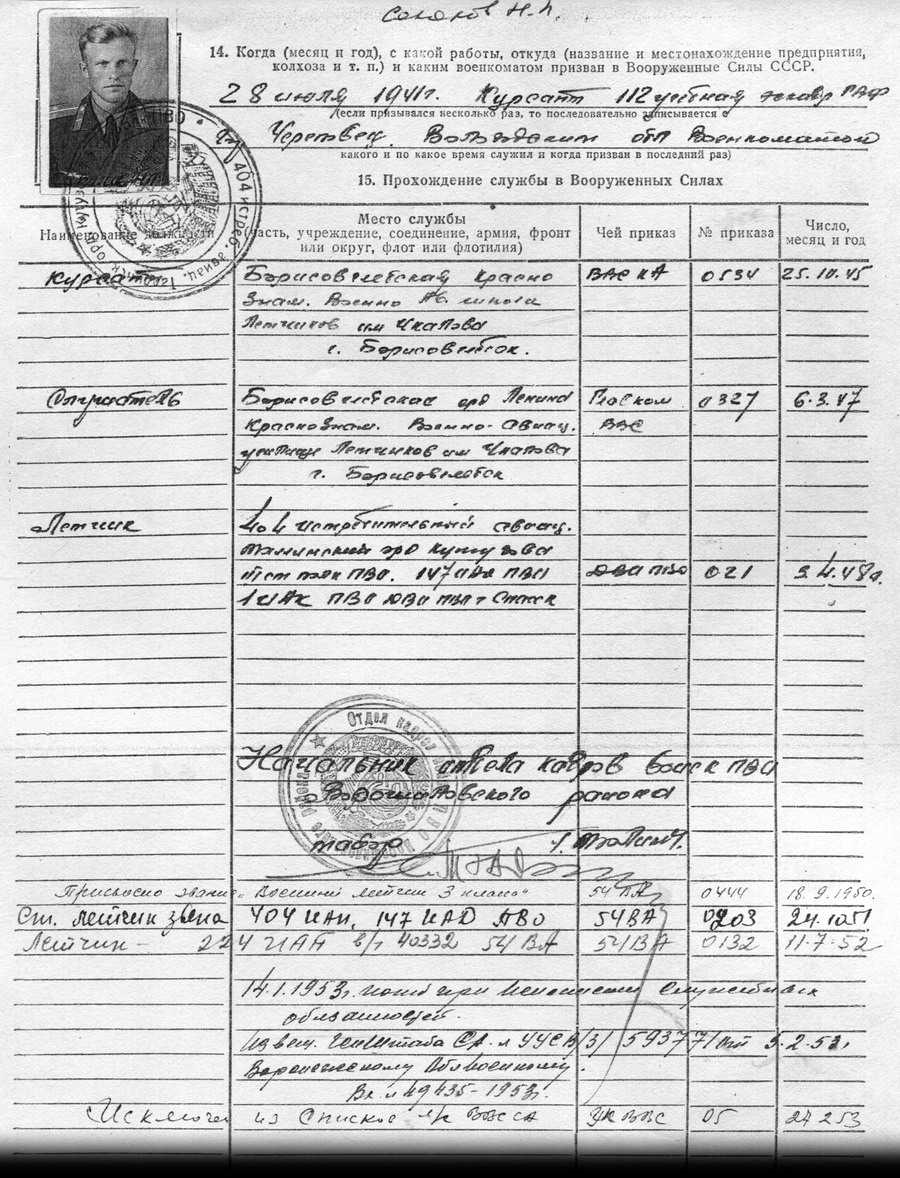 Соколов Н.П.
14. Когда (месяц и год), с какой работы, откуда (название и местонахождение предприятия,
колхоза и т. п.) и каким военкоматом призван в Вооруженные Силы СССР.
28 июля 1941г. Курсант 112 учебная
(если призывался несколько раз, то последовательно записывается с
Череповец. Вологодский обл Военкоматом
какого и по какое время служил и когда призван в последний раз)
15. Прохождение службы в Вооруженных Силах
Наименование должности
Место службы
(часть, учреждение, соединение, армия, фронт
или округ, флот или флотилия)
Чей приказ
№ приказа
Число,
месяц и год
Курсант Борисоглебская Красно ВВС КА 0534 25.10.45
Знам. Военно Ав. школа
Летчиков им Чкалова
г. Борисоглебск.
Слушатель Борисоглебская орд Ленина Главком 0327 6.3.47
Краснознам. Военно-авиац. ВВС
училище Летчиков им Чкалова
г. Борисоглебск
Летчик 404 истребительный авиац.
Таллинский орд Кутузова
ПВО. 147 иад ПВО ПВО 021 3.4.48г.
ПВО
Отдел кадров
Начальник отдела кадров войск ПВО
Ворошиловского района
майор
Присвоено звание "Военный летчик 3 класса" 54 ВА 0444 18.9.1950.
Ст. летчик звена 404 ИАП, 147 ИАД ПВО 54ВА 0203 24.10.51
Летчик - 224 ИАП в/ч 40332 54 ВА 54ВА 0132 11.7.52
14.1.1953г. погиб при исполнении служебных
обязанностей.
Извещ. Генштаба СА УУСВ/3/ 59377/ от 5.2.53г
Воронежскому Облвоенкому.
49435-1953г.
Исключен из списков л/с ВВС СА УК ВВС 05 27 2 53